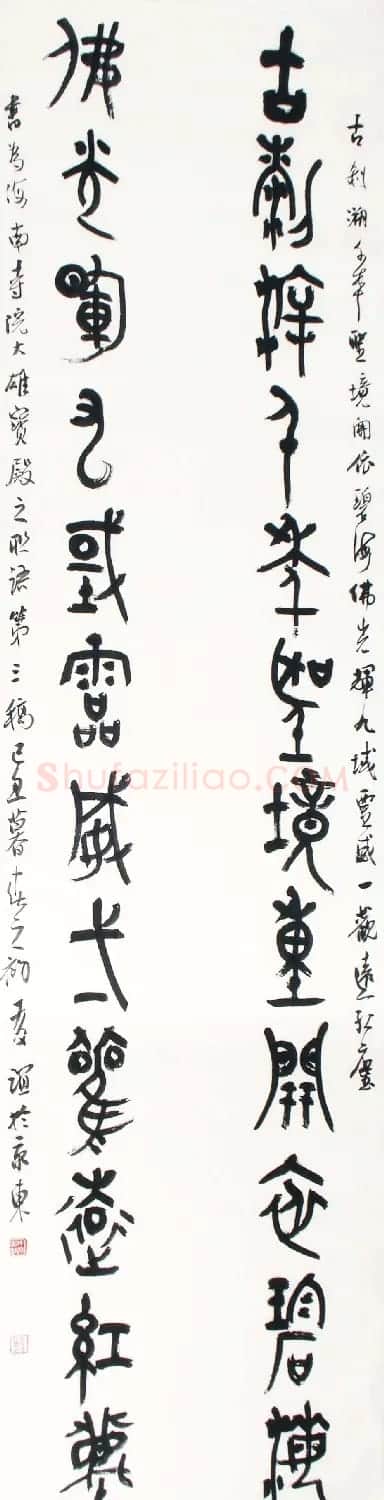 古刹溯千年聖境開依碧海佛光輝九域靈感一觀遠紅塵
古刹溯千年聖境重開依碧海
佛光暉九或靈感弌觀遠紅塵
書為海南寺院大雄寶殿之聯語第三稿己丑暮春之初於京東
Shufaziliao.COM